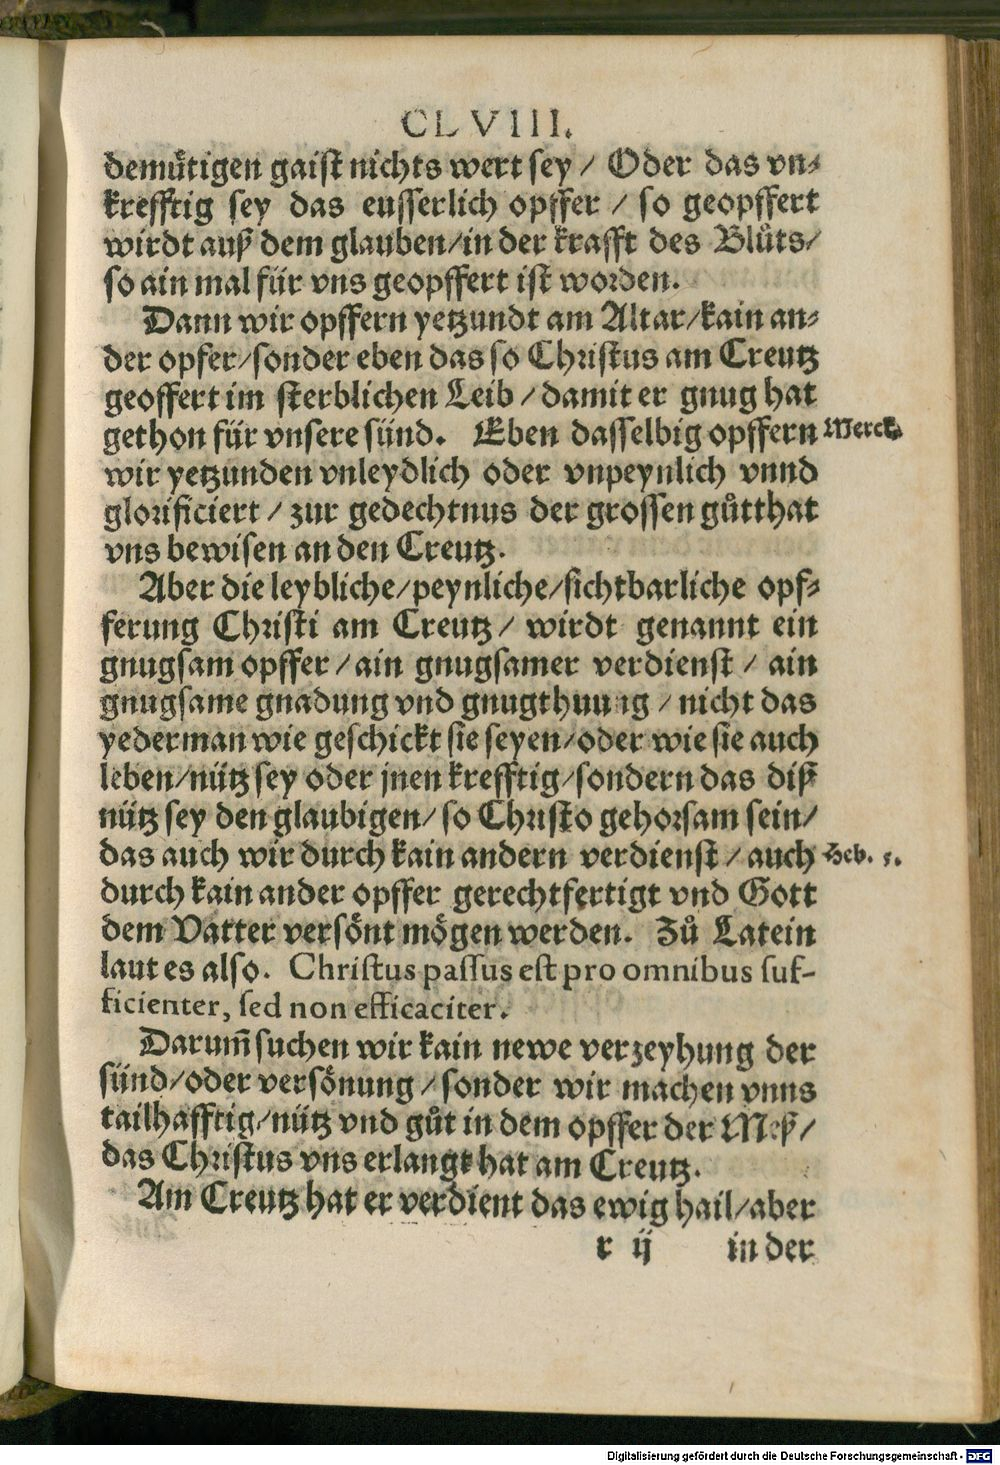 CLVIII.
demuͤtigen gaiſt nichts wert ſey / Oder das vn⸗
krefftig ſey das euſſerlich opffer / ſo geopffert
wirdt auß dem glauben/in der krafft des Bluͦts/
ſo ain mal für vns geopffert iſt worden.
Dann wir opffern yetzundt am Altar/kain an⸗
der opfer/ſonder eben das ſo Chriſtus am Creutz
geoffert im ſterblichen Leib / damit er gnug hat
gethon für vnſere ſünd. Eben daſſelbig opffern
Merck.
wir yetzunden vnleydlich oder vnpeynlich vnnd
glorificiert / zur gedechtnus der groſſen guͦtthat
vns bewiſen an den Creutz.
Aber die leybliche/peynliche/ſichtbarliche opf⸗
ferung Chriſti am Creutz / wirdt genannt ein
gnugſam opffer / ain gnugſamer verdienſt / ain
gnugſame gnadung vnd gnugthuung / nicht das
yederman wie geſchickt ſie ſeyen/oder wie ſie auch
leben/nütz ſey oder jnen krefftig/ſondern das diß
nütz ſey den glaubigen/ ſo Chriſto gehorſam ſein/
das auch wir durch kain andern verdienſt / auch
Heb.
durch kain ander opffer gerechtfertigt vnd Gott
dem Vatter verſoͤnt moͤgen werden. Zuͦ Latein
laut es alſo. Chriſtus paſſus eſt pro omnibus ſuf-
ficienter, ſed non efficaciter.
Darum̃ ſuchen wir kain newe verzeyhung der
ſünd/oder verſoͤnung / ſonder wir machen vnns
tailhafftig/nütz vnd guͦt in dem opffer der Meß /
das Chriſtus vns erlangt hat am Creutz.
Am Creutz hat er verdient das ewig hail/aber
r ij in der
Digitalisierung gefördert durch die Deutsche Forschungsgemeinschaft - DFG